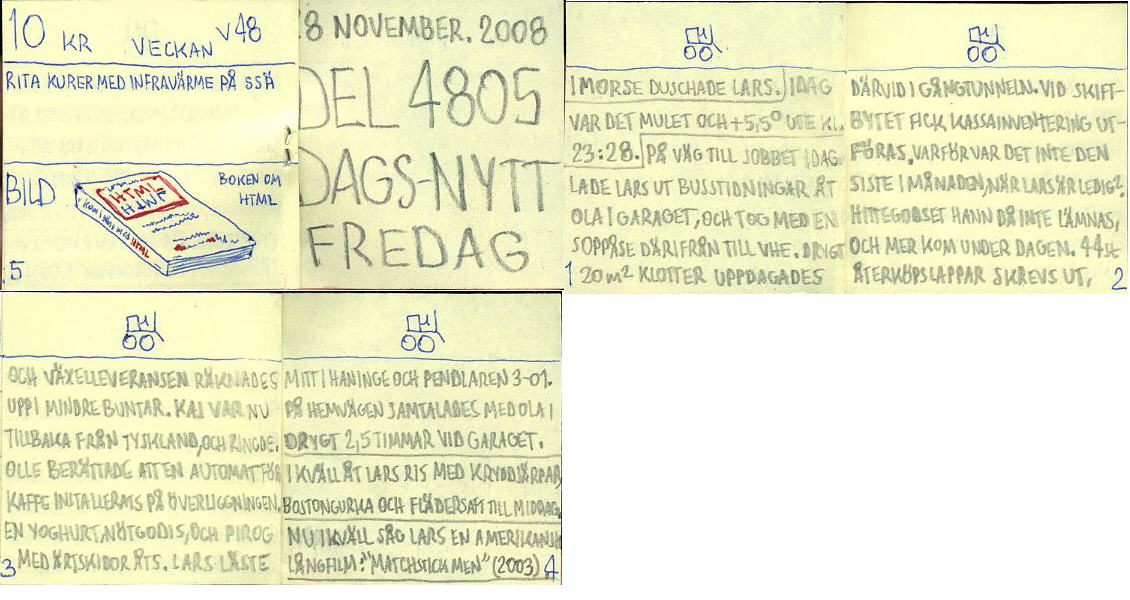 10 KR VECKAN V48
RITA KURER MED INFRAVÄRME PÅ SSÄ
BILD
BOKEN OM
HTML
HTML
HTML
HTML
5
8 NOVEMBER. 2008
DEL 4805
DAGS-NYTT
FREDAG
I MORSE DUSCHADE LARS. IDAG
VAR DET MULET OCH +5,5° UTE KL.
23:28. PÅ VÄG TILL JOBBET IDAG
LADE LARS UT BUSSTIDNINGAR ÅT
OLA I GARAGET, OCH TOG MED EN
SOPPÅSE DÄRIFRÅN TILL VHE. DRYGT
20 m² KLOTTER UPPDAGADES
1
DÄRVID I GÅNGTUNNELN. VID SKIFT-
BYTET FICK KASSAINVENTERING UT-
FÖRAS, VARFÖR VAR DET INTE DEN
SISTE I MÅNADEN, NÄR LARS ÄR LEDIG?
HITTEGODSET HANN DÅ INTE LÄMNAS,
OCH MER KOM UNDER DAGEN. 44 st
ÅTERKÖPSLAPPAR SKREVS UT,
2
OCH VÄXELLEVERANSEN RÄKNADES
UPP I MINDRE BUNTAR. KAJ VAR NU
TILLBAKA FRÅN TYSKLAND, OCH RINGDE.
OLLE BERÄTTADE ATT EN AUTOMAT FÖR
KAFFE INSTALLERATS PÅ ÖVERLIGGNINGEN.
EN YOGHURT, NÖTGODIS, OCH PIROG
MED ÄRTSKIDOR ÅTS. LARS LÄSTE
3
MITT I HANINGE OCH PENDLAREN 3-01.
PÅ HEMVÄGEN SAMTALADES MED OLA I
DRYGT 2,5 TIMMAR VID GARAGET.
I KVÄLL ÅT LARS RIS MED KRYDDJÄRPAR,
BOSTONGURKA OCH FLÄDERSAFT TILL MIDDAG.
NU I KVÄLL SÅG LARS EN AMERIKANSK
LÅNGFILM: "MATCHSTICK MEN" (2003)
4